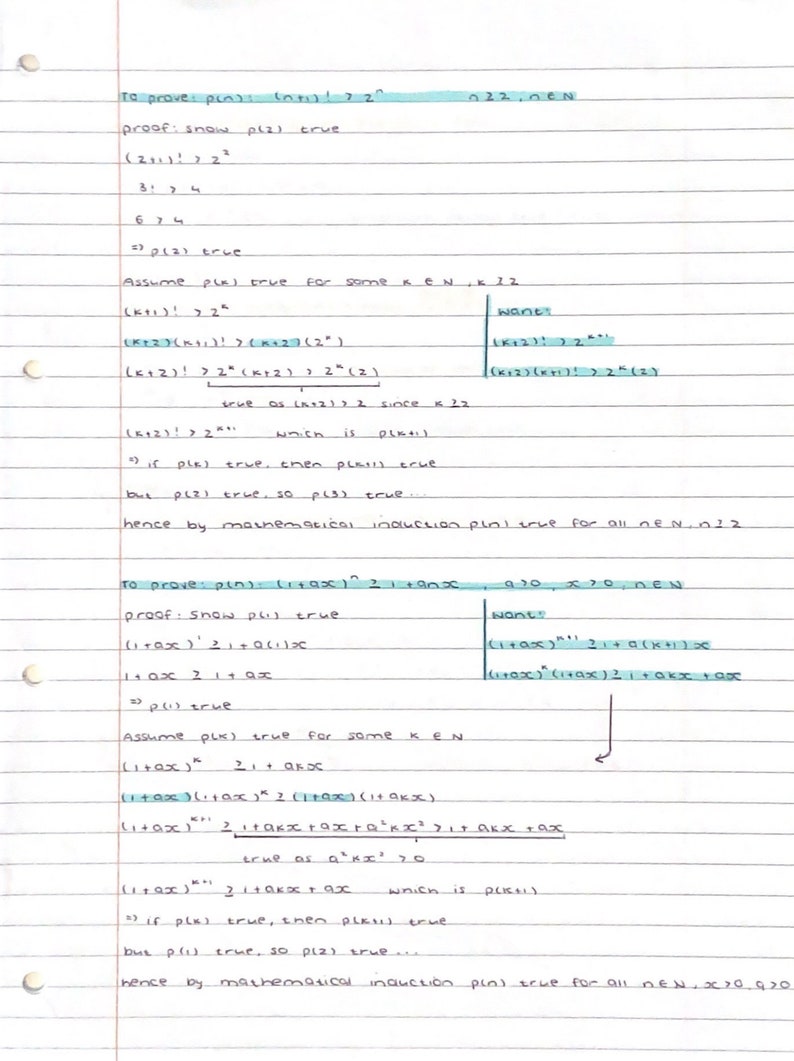 To prove: p(n): (n+1)! > 2ⁿ n ≥ 2, n ∈ N
proof: show p(2) true
(2+1)! > 2²
3! > 4
6 > 4
⇒ p(2) true
Assume p(k) true for some k ∈ N, k ≥ 2
(k+1)! > 2ᵏ
(k+2)(k+1)! > (k+2)(2ᵏ)
(k+2)! > 2ᵏ(k+2) > 2ᵏ(2)
true as (k+2) > 2 since k ≥ 2
want:
(k+2)! > 2ᵏ⁺¹
(k+2)(k+1)! > 2ᵏ(2)
(k+2)! > 2ᵏ⁺¹ which is p(k+1)
⇒ if p(k) true, then p(k+1) true
but p(2) true, so p(3) true...
hence by mathematical induction p(n) true for all n ∈ N, n ≥ 2
To prove: p(n): (1+ax)ⁿ ≥ 1+anx , a>0, x>0, n ∈ N
proof: show p(1) true
(1+ax)¹ ≥ 1+a(1)x
1+ax ≥ 1+ax
⇒ p(1) true
want:
(1+ax)ᵏ⁺¹ ≥ 1+a(k+1)x
(1+ax)ᵏ(1+ax) ≥ 1+akx+ax
Assume p(k) true for some k ∈ N
(1+ax)ᵏ ≥ 1+akx
(1+ax)(1+ax)ᵏ ≥ (1+ax)(1+akx)
(1+ax)ᵏ⁺¹ ≥ 1+akx+ax+a²kx² > 1+akx+ax
true as a²kx² > 0
(1+ax)ᵏ⁺¹ ≥ 1+akx+ax which is p(k+1)
⇒ if p(k) true, then p(k+1) true
but p(1) true, so p(2) true...
hence by mathematical induction p(n) true for all n ∈ N, x>0, a>0